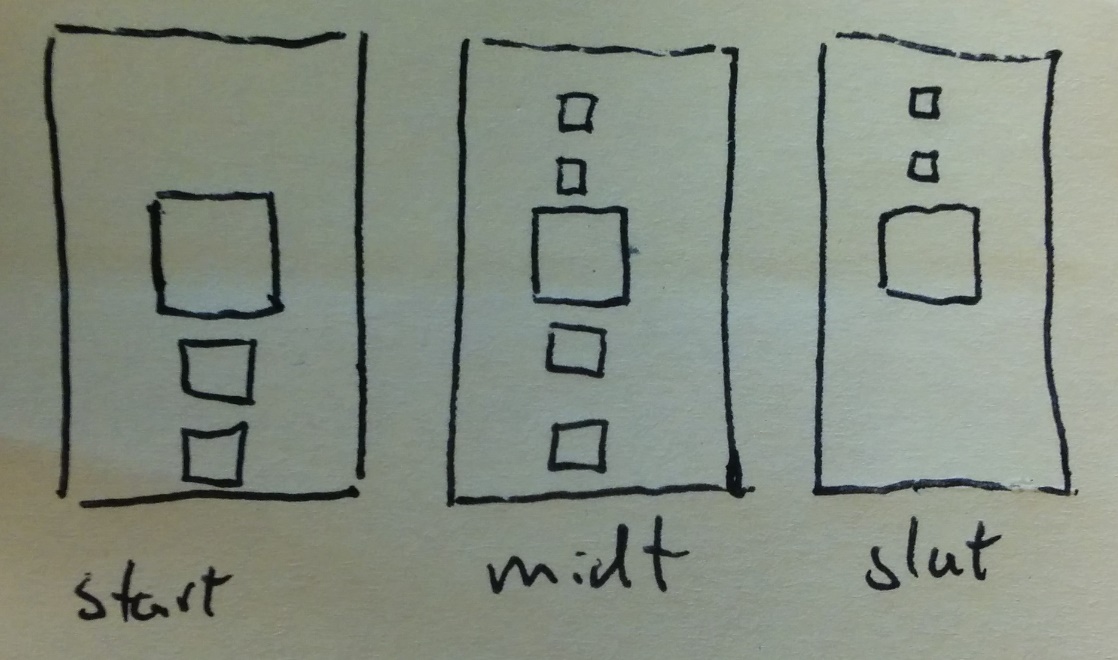 start midt slut